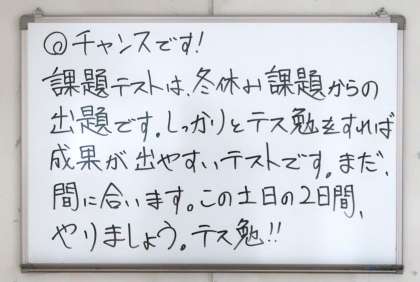 ◎チャンスです!
課題テストは、冬休み課題からの
出題です。しっかりとテス勉をすれば
成果が出やすいテストです。まだ、
間に合います。この土日の2日間、
やりましょう。テス勉!!